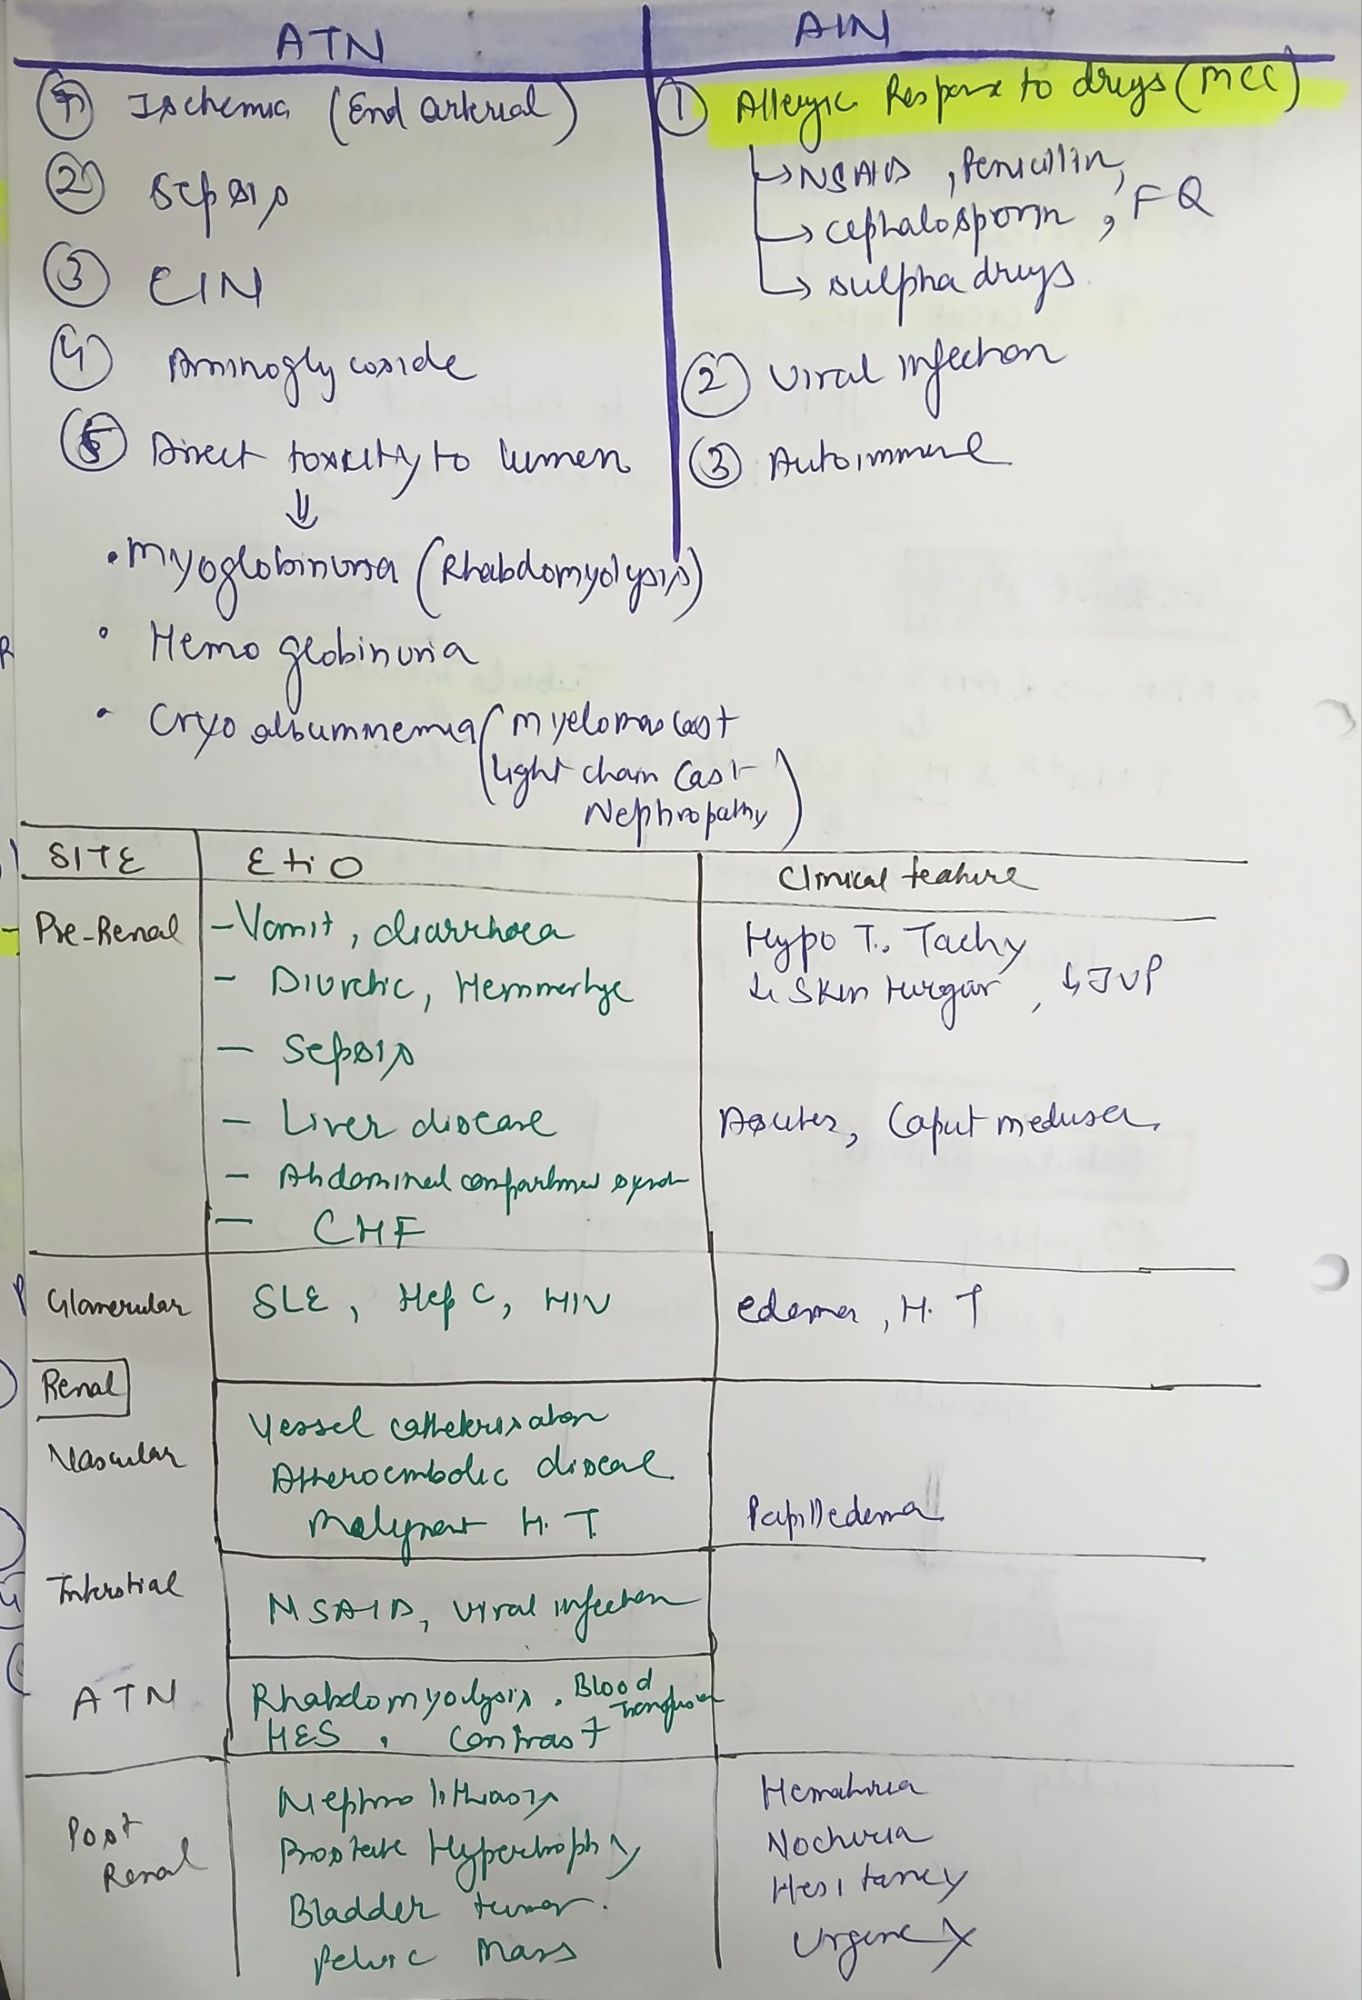 ATN
AIN
① Ischemia (End arterial)
② Sepsis
③ CIN
④ Aminoglycoside
⑤ Direct toxicity to lumen
⇓
• Myoglobinuria (Rhabdomyolysis)
• Hemoglobinuria
• Cryo albuminemia (Myeloma cast
light chain Cast
Nephropathy)
① Allergic Response to drugs (MCC)
→ NSAID, Penicillin,
→ cephalosporin, FQ
→ sulpha drugs.
② Viral infection
③ Autoimmune
SITE Etio Clinical feature
Pre-Renal
- Vomit, diarrhoea
- Diuretic, Hemmorhge
- Sepsis
- Liver disease
- Abdominal compartment synd
- CHF
Hypo T. Tachy
↓ Skin turgor, ↓ JVP
Ascites, Caput medusa.
Glomerular SLE, Hep C, HIV edema, H.T
Renal
Vascular
Vessel catheterisation
Atheroembolic disease
Malignant H.T.
Papilledema
Interstitial NSAID, viral infection
ATN
Rhabdomyolysis. Blood Transfusion
HES. Contrast
Post
Renal
Nephrolithiasis
Prostate Hypertrophy
Bladder tumor.
Pelvic Mass
Hematuria
Nocturia
Hesitancy
Urgency